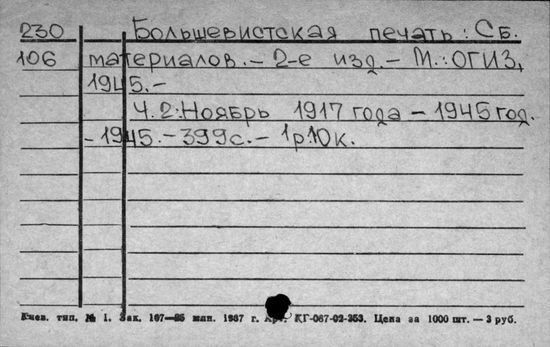 230 Большевистская печать: Сб.
106 материалов.– 2-е изд.– М.: ОГИЗ,
1945.–
Ч. 2: Ноябрь 1917 года – 1945 год.
– 1945.– 399с.– 1р.10к.
Киев. тип. № 1. Зак. 107—25 млн. 1987 г. Арт. КГ-067-02-353. Цена за 1000 шт. — 3 руб.